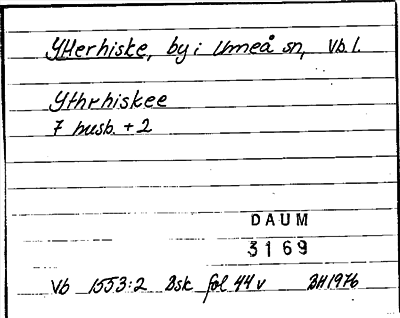 Ytterhiske, by i Umeå sn, Vb. l.
Ythrhiskee
7 husb. + 2
DAUM
3169
Vb 1553:2 Dsk fol 44 v BH 1976